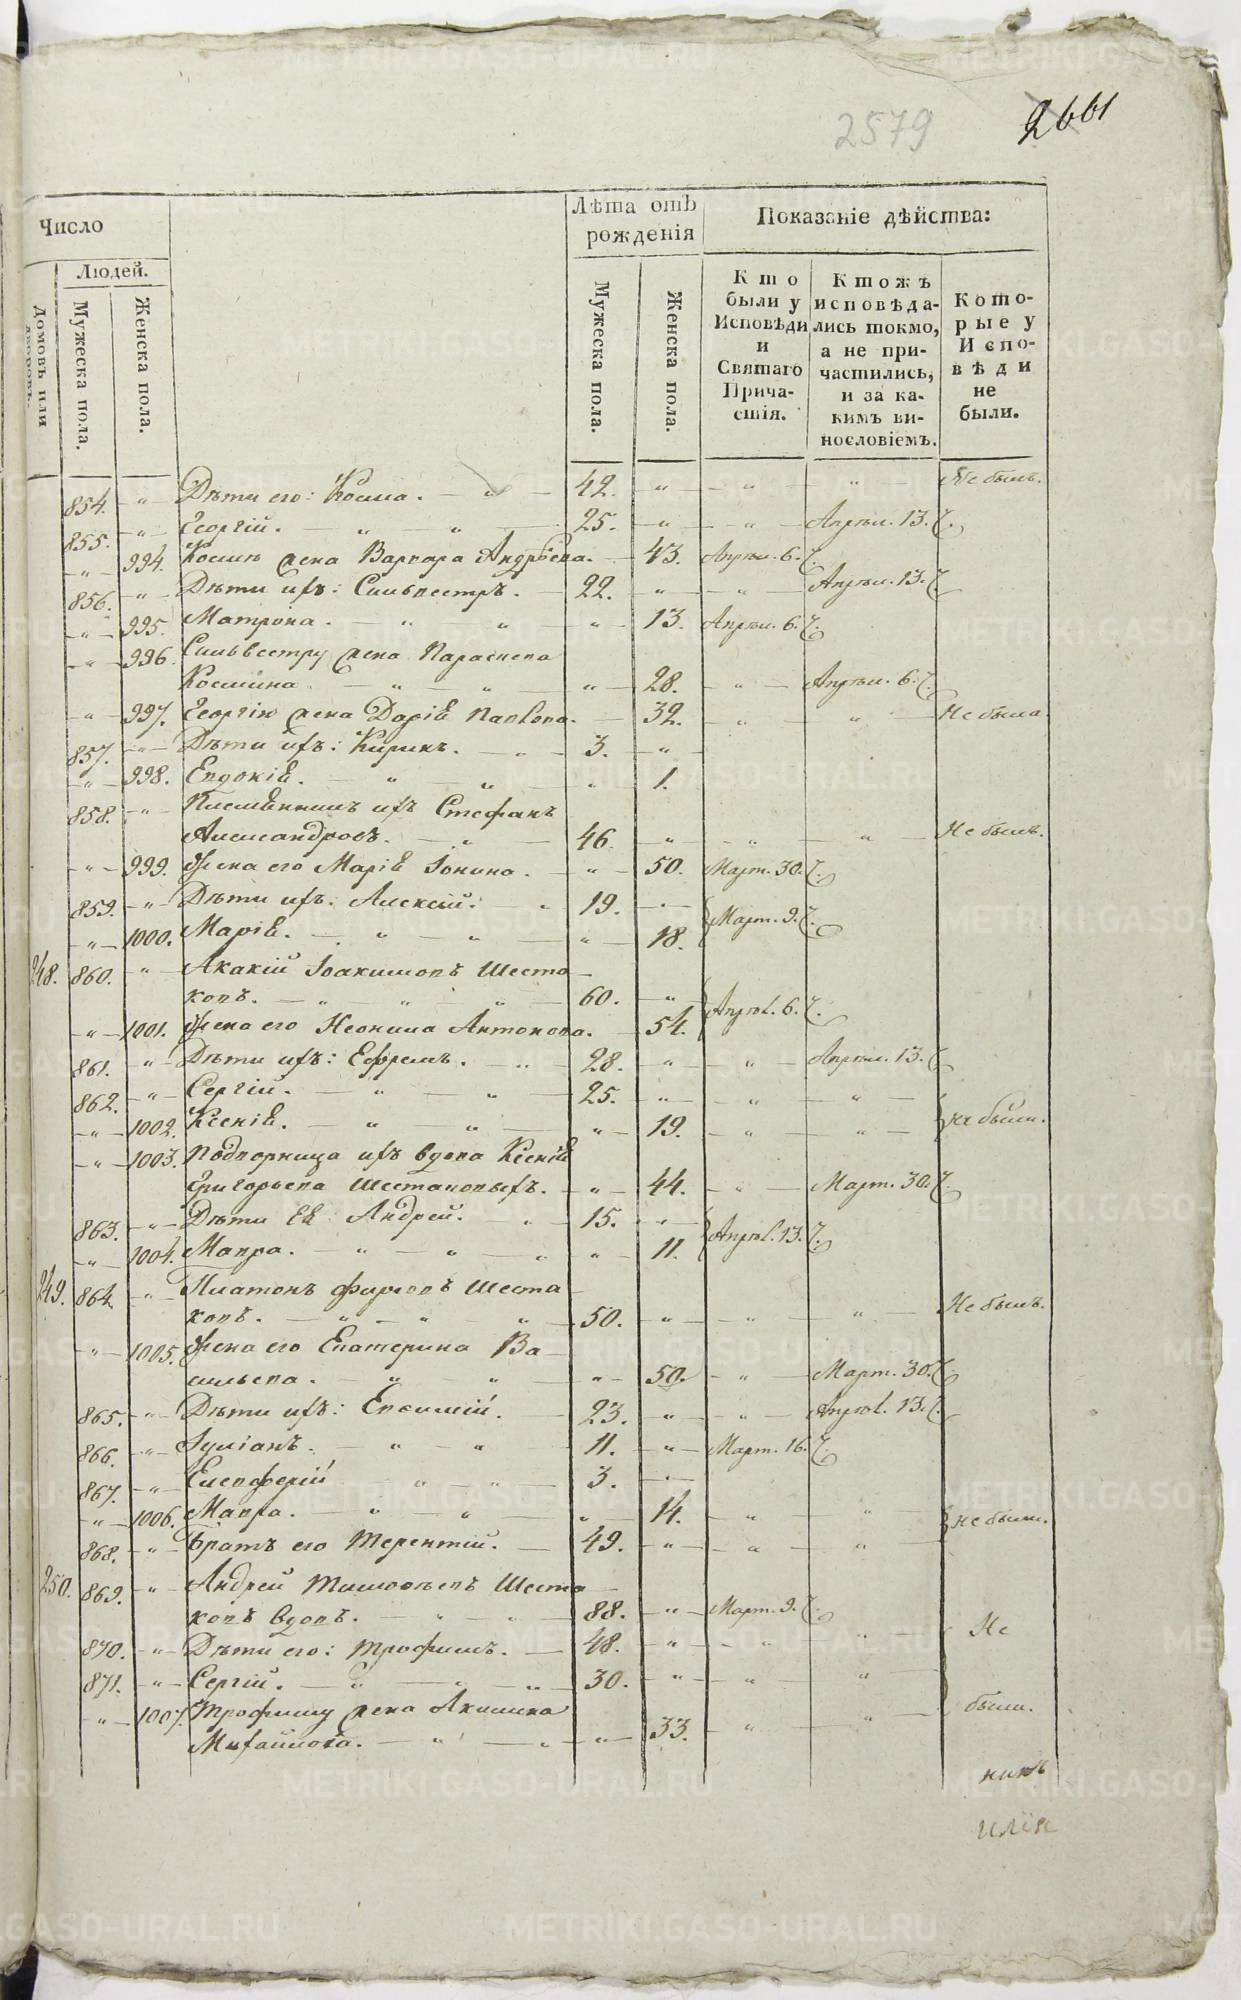 2579
2661
Число
Людей.
Домовъ или дворовъ.
Мужеска пола.
Женска пола.
Лѣта отъ рожденія
Мужеска пола.
Женска пола.
Показаніе дѣйства:
Кто были у Исповѣди и Святаго Причастія.
Ктожъ исповѣдались токмо, а не причастились, и за какимъ винословіемъ.
Которые у Исповѣди не были.
854. — " — Дѣти его: Косма. — " — 42. — " — " — " Не былъ.
855. — " — Георгій. — " — " — 25. — " — " — Апрѣл. 13.
— " — 994. Космы жена Варвара Андрѣева. — 43. Апрѣл. 6.
856. — " — Дѣти ихъ: Сильвестръ. — 22. — " — " — Апрѣл. 13.
— " — 995. Матрона. — " — " — " — 13. Апрѣл. 6.
— " — 996. Сильвестру жена Параскева
Космина — " — " — " — 28. — " — Апрѣл. 6.
— " — 997. Георгію жена Даріѣ Павлова. — 32. — " — " Не была.
857. — " — Дѣти ихъ: Кирикъ. — " — 3. — "
— " — 998. Евдокіѣ. — " — " — " — 1.
858. — " — Племѣнникъ ихъ Стефанъ
Александровъ. — " — 46. — " — " — " Не былъ.
— " — 999. Жена его Маріѣ Іонина. — " — 50. Март. 30.
859. — " — Дѣти ихъ: Алексій. — " 19. — " — Март. 9.
— " — 1000. Маріѣ. — " — " — " — 18.
248. 860. — " — Акакій Іоакимовъ Шеста-
ковъ. — " — " — " — 60. — " — Апрѣл. 6.
— " — 1001. Жена его Неонила Антонова. — 54.
861. — " — Дѣти ихъ: Ефремъ. — " — 28. — " — " — Апрѣл. 13.
862. — " — Сергій. — " — " — 25. — " — " — " — не были.
— " — 1002. Ксеніѣ. " " — " — 19. — " — " —
— " — 1003. Подворница ихъ вдова Ксеніѣ
Григорьева Шестаковыхъ. — " — 44. — " — Март. 30.
863. — " — Дѣти Еѣ: Андрей. — " — 15. — " — Апрѣл. 13.
— " — 1004. Мавра. — " — " — " " — 11.
249. 864. — " — Платонъ Фирсовъ Шеста-
ковъ. — " — " — " — 50. — " — " — " — Не былъ.
— " — 1005. Жена его Екатерина Ва-
сильева. — " — " — " — 50. — " — Март. 30.
865. — " — Дѣти ихъ: Евсимій. — 23. — " — " — Апрѣл. 13.
866. — " — Іуліанъ. — " — " — 11. — " — Март. 16.
867. — " — Елевферій " — " — 3. — "
— " — 1006. Мавра. " — " — " — 14. — " — " не были.
868. — " — Братъ его Терентій. — 49. — " — " — "
250. 869. — " — Андрей Тимофѣевъ Шеста-
ковъ вдовъ. — " — " — 88. — " — Март. 9.
870. — " — Дѣти его: Трофимъ. — 48. — " — " — " — Не
871. — " — Сергій. — " — " — " — 30. — " — " — "
— " — 1007. Трофиму жена Акилина были.
Михайлова. — " — " — " — 33. — " — " —
никъ